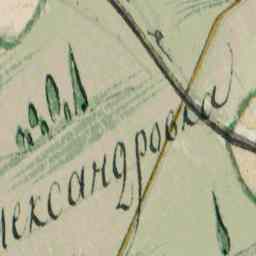 лександровка